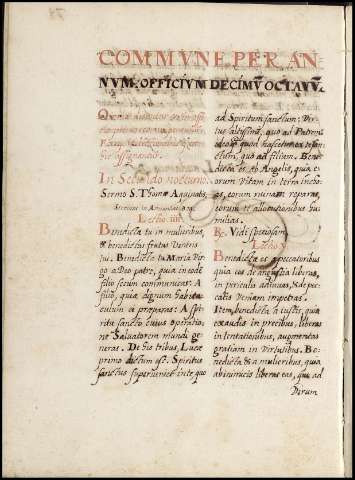 COMMVNE PER AN
NVM. OFFICIVM DECIMṼ OCTAVṼ.
In Secundo nocturno.
Sermo S. Thomæ Aquinatis,
Lectio iiij.
Benedicta tu in mulieribus,
& benedictus frutus Ventris
tui. Benedicta tu Maria Virgo
a Deo patre, quia cum eode
filio secum communicas: A
filio, quia dignum habita
culum ei præparas: A spi
ritu sancto cuius operatio
ne Salvatorem mundi ge
neras. De his tribus, Lucæ
primo dictum est. Spiritus
sanctus superveniet in te, quo
ad Spiritum sanctum; Vir
tus altissimi, quo ad Patrem
ideoq; quod nascetur ex te san
ctum, quo ad filium. Bene
dicta es ab Angelis, quia e
orum Vitam in terra incho
as, eorum ruinam reparas,
eorum allocutionibus hu
milias.
R. Vidi speciosam
Lectio
Benedicta es a peccatoribus
quia eos de angustia liberas,
in periculis adiuvas, & de pec
catis Veniam impetras.
Item benedicta a iustis, quia
exaudis in precibus, liberas
in tentationibus, augmentas
gratiam in Virtutibus. Be
nedicta & a mulieribus, quia
ab inimicis liberas eas, quo ad
Virum